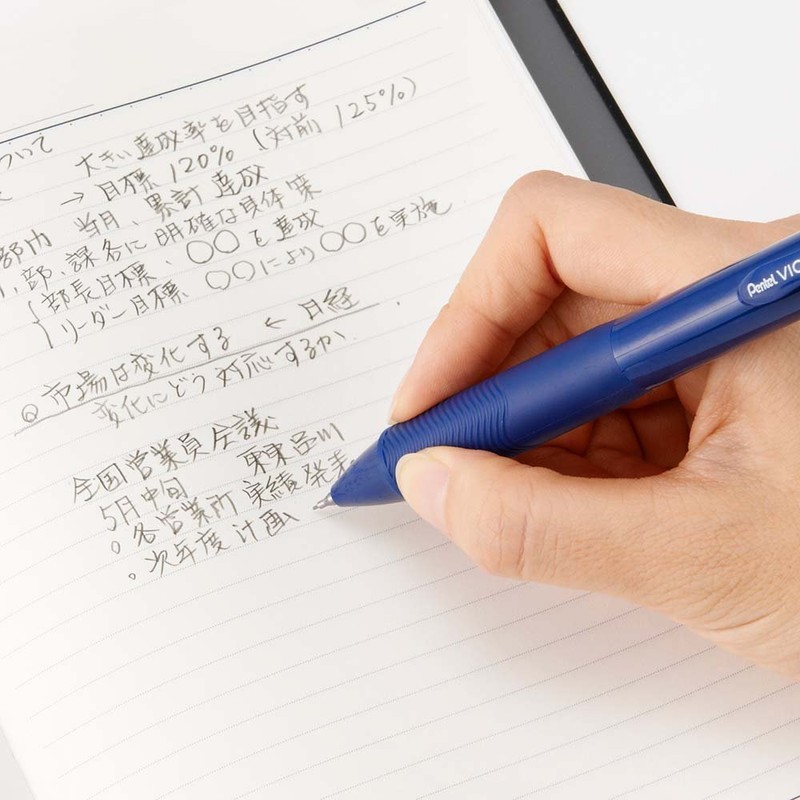 ついて
大きい達成率を目指す
→ 目標 120% (対前 125%)
当月、累計 達成
部内
部、課各に明確な具体策
部長目標、〇〇を達成
リーダー目標 〇〇により〇〇を実施
◎ 市場は変化する ← 日経
変化にどう対応するか、
全国営業員会議
5月中旬 東京品川
。各営業所 実績発表
。次年度計画
Pentel VIC